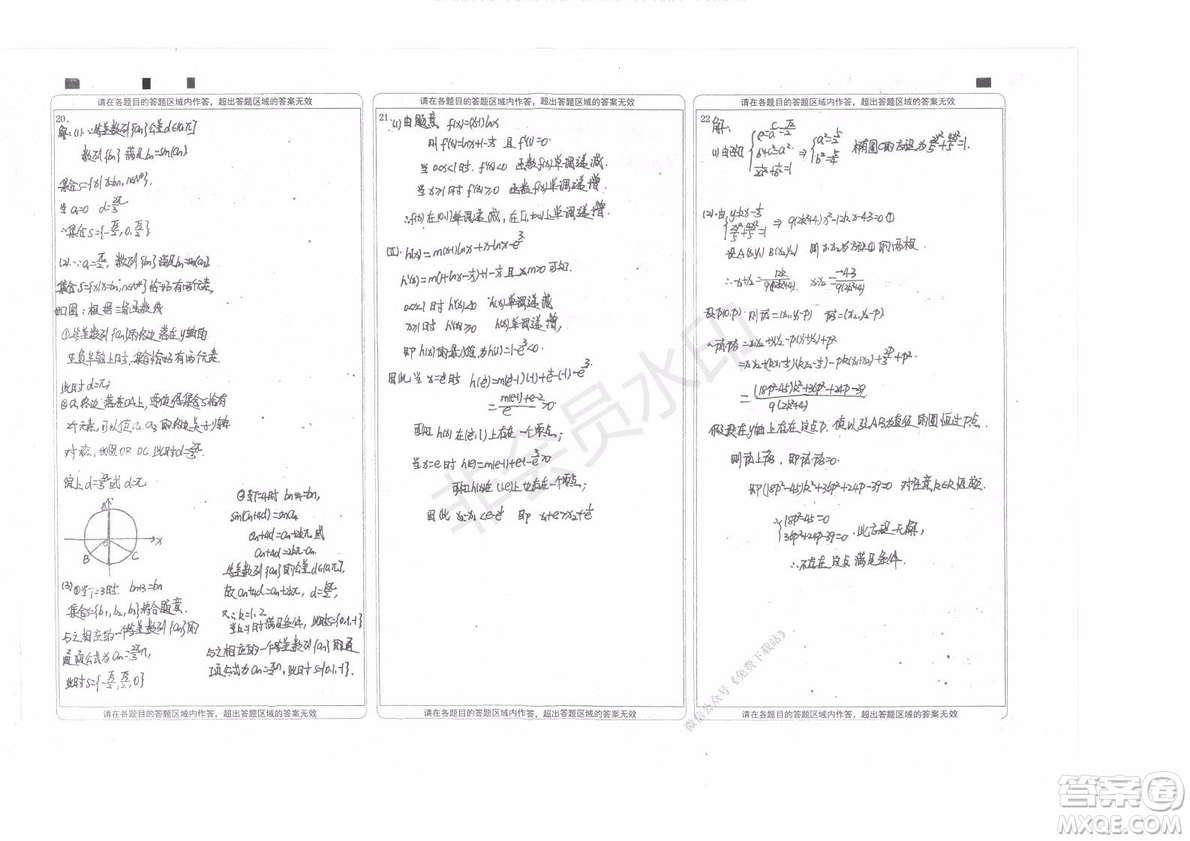 请在各题目的答题区域内作答，超出答题区域的答案无效
20.
解：(1)∵等差数列{an}公差d∈(0,π]
数列{bn}满足bn=sin(an)
集合S={x|x=bn,n∈N*}.
当a1=0 d=2π/3
∴集合S={-√3/2,0,√3/2}
(2)∵a1=π/2, 数列{bn}满足bn=sin(an)
集合S={x|x=bn,n∈N*}恰好有两个元素
如图：根据三角函数线
①等差数列{an}的终边落在y轴的
正负半轴上时,集合恰好有两个元素
此时d=π
②a1终边落在OA上，要使得集合S恰有
2个元素，可以使a2,a3的终边关于y轴
对称，如图OB OC,此时d=2π/3
综上d=2π/3或d=π
A
O
x
B
C
(3)①当T=3时 bn+3=bn
集合S={b1,b2,b3}符合题意.
与之相应的一个等差数列{an}的
通项公式为an=2π/3 n,
此时S={-√3/2,√3/2,0}
②当T=4时 bn+4=bn,
sin(an+4d)=sinan
an+4d=an+2kπ 或
an+4d=2kπ-an
等差数列{an}的公差d∈(0,π]
故an+4d=an+2kπ, d=kπ/2
又∴k=1,2
当k=1时满足条件,此时S={0,1,-1}
与之相应的一个等差数列{an}的通
项公式为an=π/2 n,此时S={0,1,-1}
请在各题目的答题区域内作答，超出答题区域的答案无效
请在各题目的答题区域内作答，超出答题区域的答案无效
21.
(1)由题意 f(x)=(x-1)lnx
则f'(x)=lnx+1-1/x 且f'(1)=0
当0<x<1时f'(x)<0 函数f(x)单调递减
当x≥1时f'(x)≥0 函数f(x)单调递增
∴f(x)在(0,1)单调递减,在[1,+∞)上单调递增
(Ⅱ): h(x)=m(x-1)lnx+x-lnx-e^3
h'(x)=m(lnx+1-1/x)+1-1/x 且m>0可知
0<x<1时h'(x)<0 h(x)单调递减
x≥1时h'(x)≥0 h(x)单调递增,
即h(x)的最小值为h(1)=1-e^3<0.
可知h(x)在(1/e,1)上存在一个零点;
可知h(x)在(1,e)上也存在一个零点,
因此x2-x1<e-1/e 即x1+e>x2+1/e
请在各题目的答题区域内作答，超出答题区域的答案无效
请在各题目的答题区域内作答，超出答题区域的答案无效
22
解：
(1)由题
e=c/a=√2/2
b²+c²=a²
⇒
a²=5/2
b²=5/4
椭圆C的方程为2x²/5+4y²/5=1.
(2)由
y=kx-1/3
2x²/5+4y²/5=1
⇒ 9(2k²+4)x²-12kx-43=0①
设A(x1,y1) B(x2,y2) 则x1,x2为方程①的两根
∴x1+x2=12k/9(2k²+4) x1x2=-43/9(2k²+4)
设P(0,p) 则PA=(x1,y1-p) PB=(x2,y2-p)
∴PA·PB=x1x2+y1y2-p(y1+y2)+p²
=(18p²-45)k²+36p²+24p-39/9(2k²+4)
假设在y轴上存在定点P,使以弦AB为直径的圆恒过P点.
则PA⊥PB, 即PA·PB=0
即(18p²-45)k²+36p²+24p-39=0 对任意k∈R恒成立
18p²-45=0
36p²+24p-39=0
此方程无解,
∴不存在定点满足条件.
请在各题目的答题区域内作答，超出答题区域的答案无效
非会员水印
微信公众号《免费下载站》
答案圈
MXQE.COM